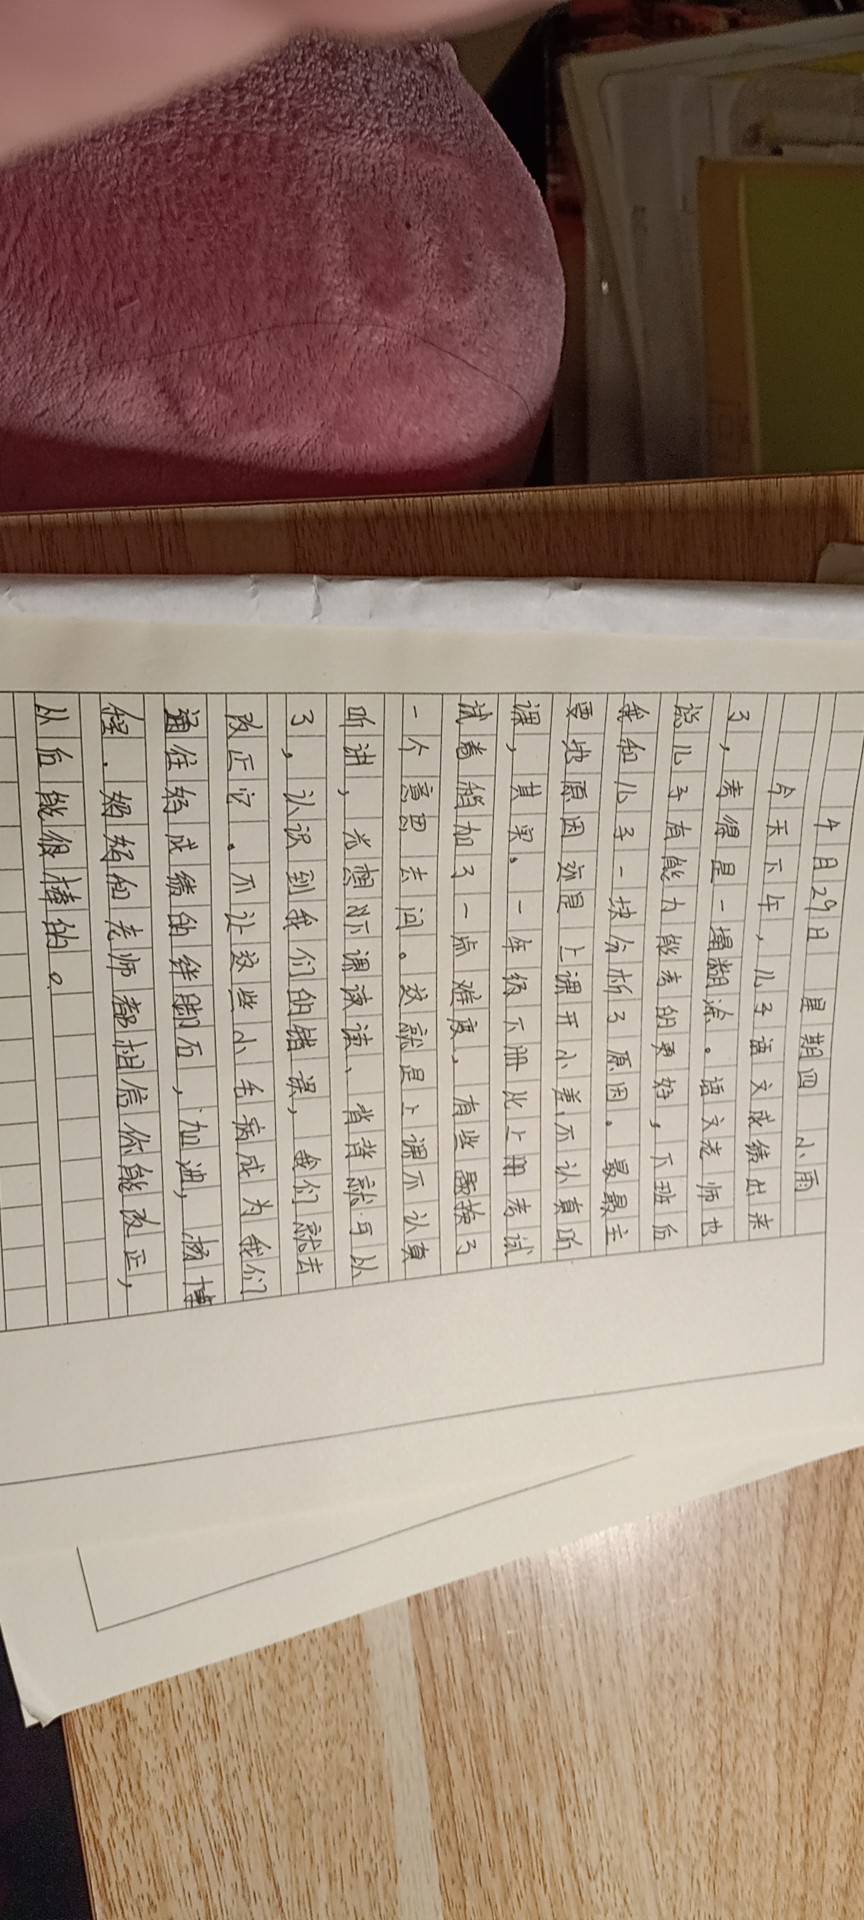 4月29日 星期四 小雨
今天下午,儿子语文成绩出来
了,考得是一塌糊涂。语文老师也
说儿子有能力能考的更好,下班后
我和儿子一块分析了原因。最最主
要地原因还是上课开小差,不认真听
课,其实。一年级下册比上册考试
试卷能加了一点难度,有些题换了
一个意思去问。这就是上课不认真
听讲,光想听课读读、背背就可以
了,认识到我们的错误,我们就去
改正它。不让这些小毛病成为我们
通往好成绩的绊脚石,加油,杨博
程.妈妈和老师都相信你能改正,
从后做很棒的。